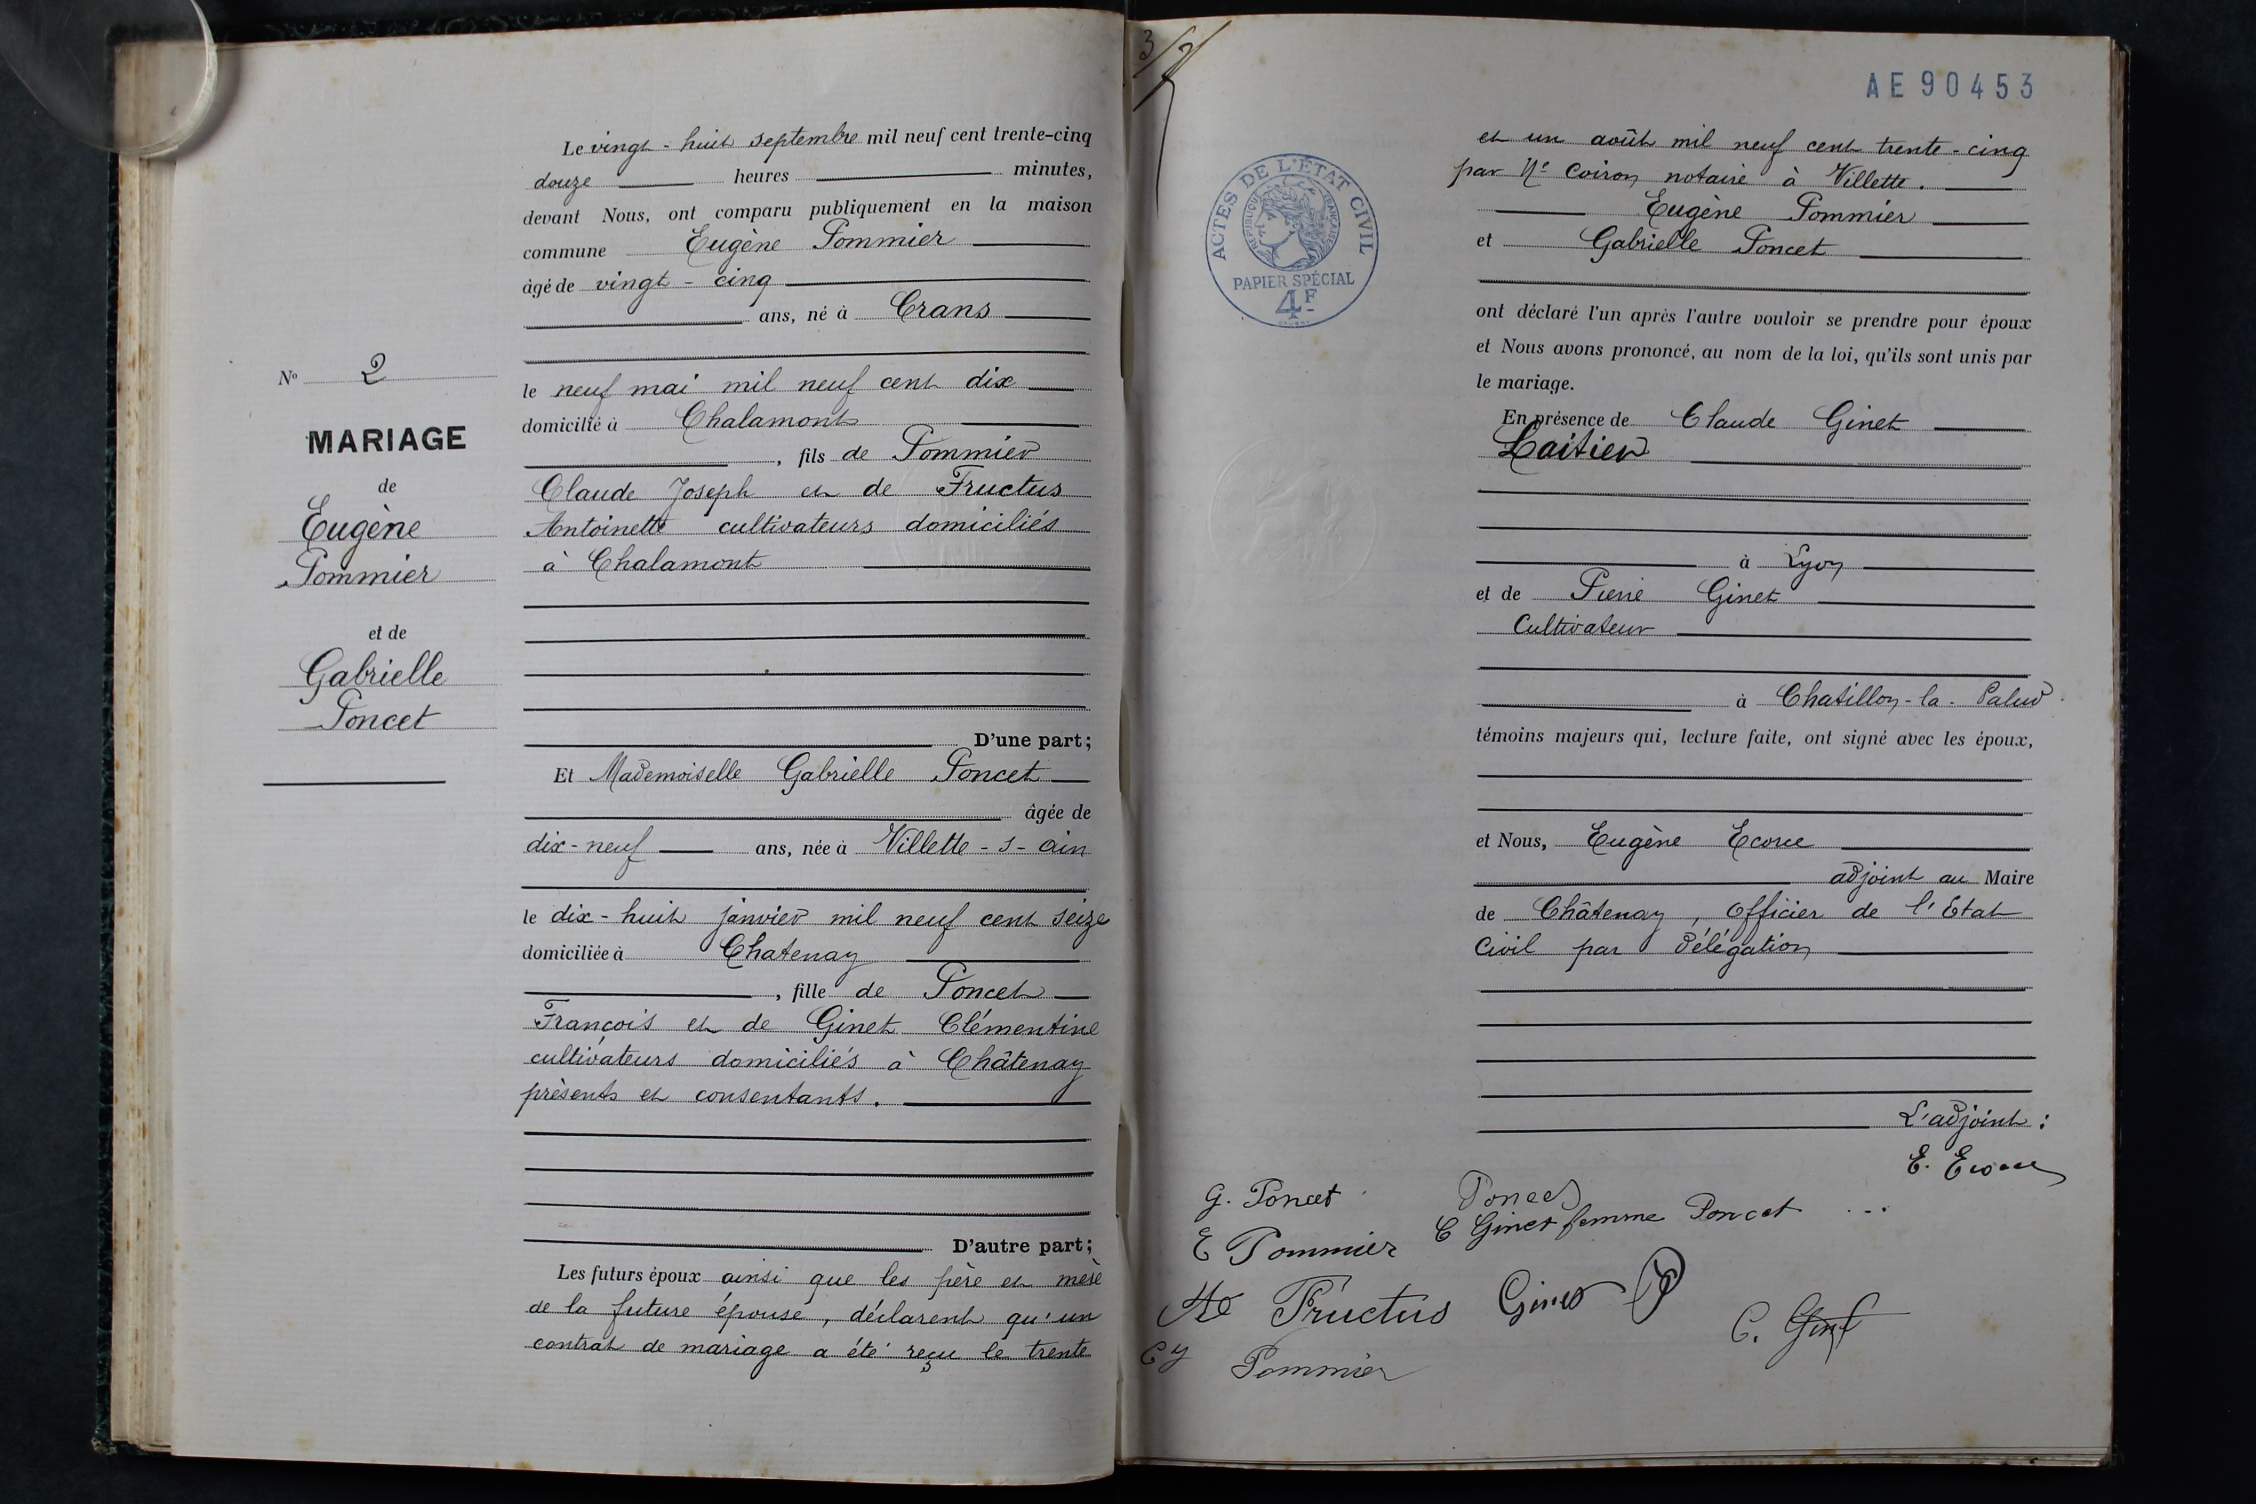 Le vingt-huit septembre mil neuf cent trente-cinq
douze heures minutes,
devant Nous, ont comparu publiquement en la maison
commune Eugène Pommier
âgé de vingt-cinq
ans, né à Crans
le neuf mai mil neuf cent dix
domicilié à Chalamont
, fils de Pommier
Claude Joseph et de Fructus
Antoinette cultivateurs domiciliés
à Chalamont
D'une part;
Et Mademoiselle Gabrielle Poncet
âgée de
dix-neuf ans, née à Villette-s-ain
le dix-huit janvier mil neuf cent seize
domiciliée à Chatenay
, fille de Poncet
François et de Ginet Clémentine
cultivateurs domiciliés à Châtenay
présents et consentants.
D'autre part;
Les futurs époux ainsi que les père et mère
de la future épouse, déclarent qu'un
contrat de mariage a été reçu le trente
No 2
MARIAGE
de
Eugène
Pommier
et de
Gabrielle
Poncet
3/2
AE 90453
ACTES DE L'ÉTAT CIVIL
RÉPUBLIQUE FRANÇAISE
PAPIER SPÉCIAL
4F
et un août mil neuf cent trente-cinq
par Me Coiron notaire à Villette.
Eugène Pommier
et Gabrielle Poncet
ont déclaré l'un après l'autre vouloir se prendre pour époux
et Nous avons prononcé, au nom de la loi, qu'ils sont unis par
le mariage.
En présence de Claude Ginet
Laitier
à Lyon
et de Pierre Ginet
Cultivateur
à Chatillon-la-Palud.
témoins majeurs qui, lecture faite, ont signé avec les époux,
et Nous, Eugène Ecoue
adjoint au Maire
de Châtenay, Officier de l'Etat
Civil par délégation
L'adjoint:
G. Poncet
Poncet
E Pommier
C Ginet femme Poncet
Fructus
Ginet
C. Ginet
Pommier